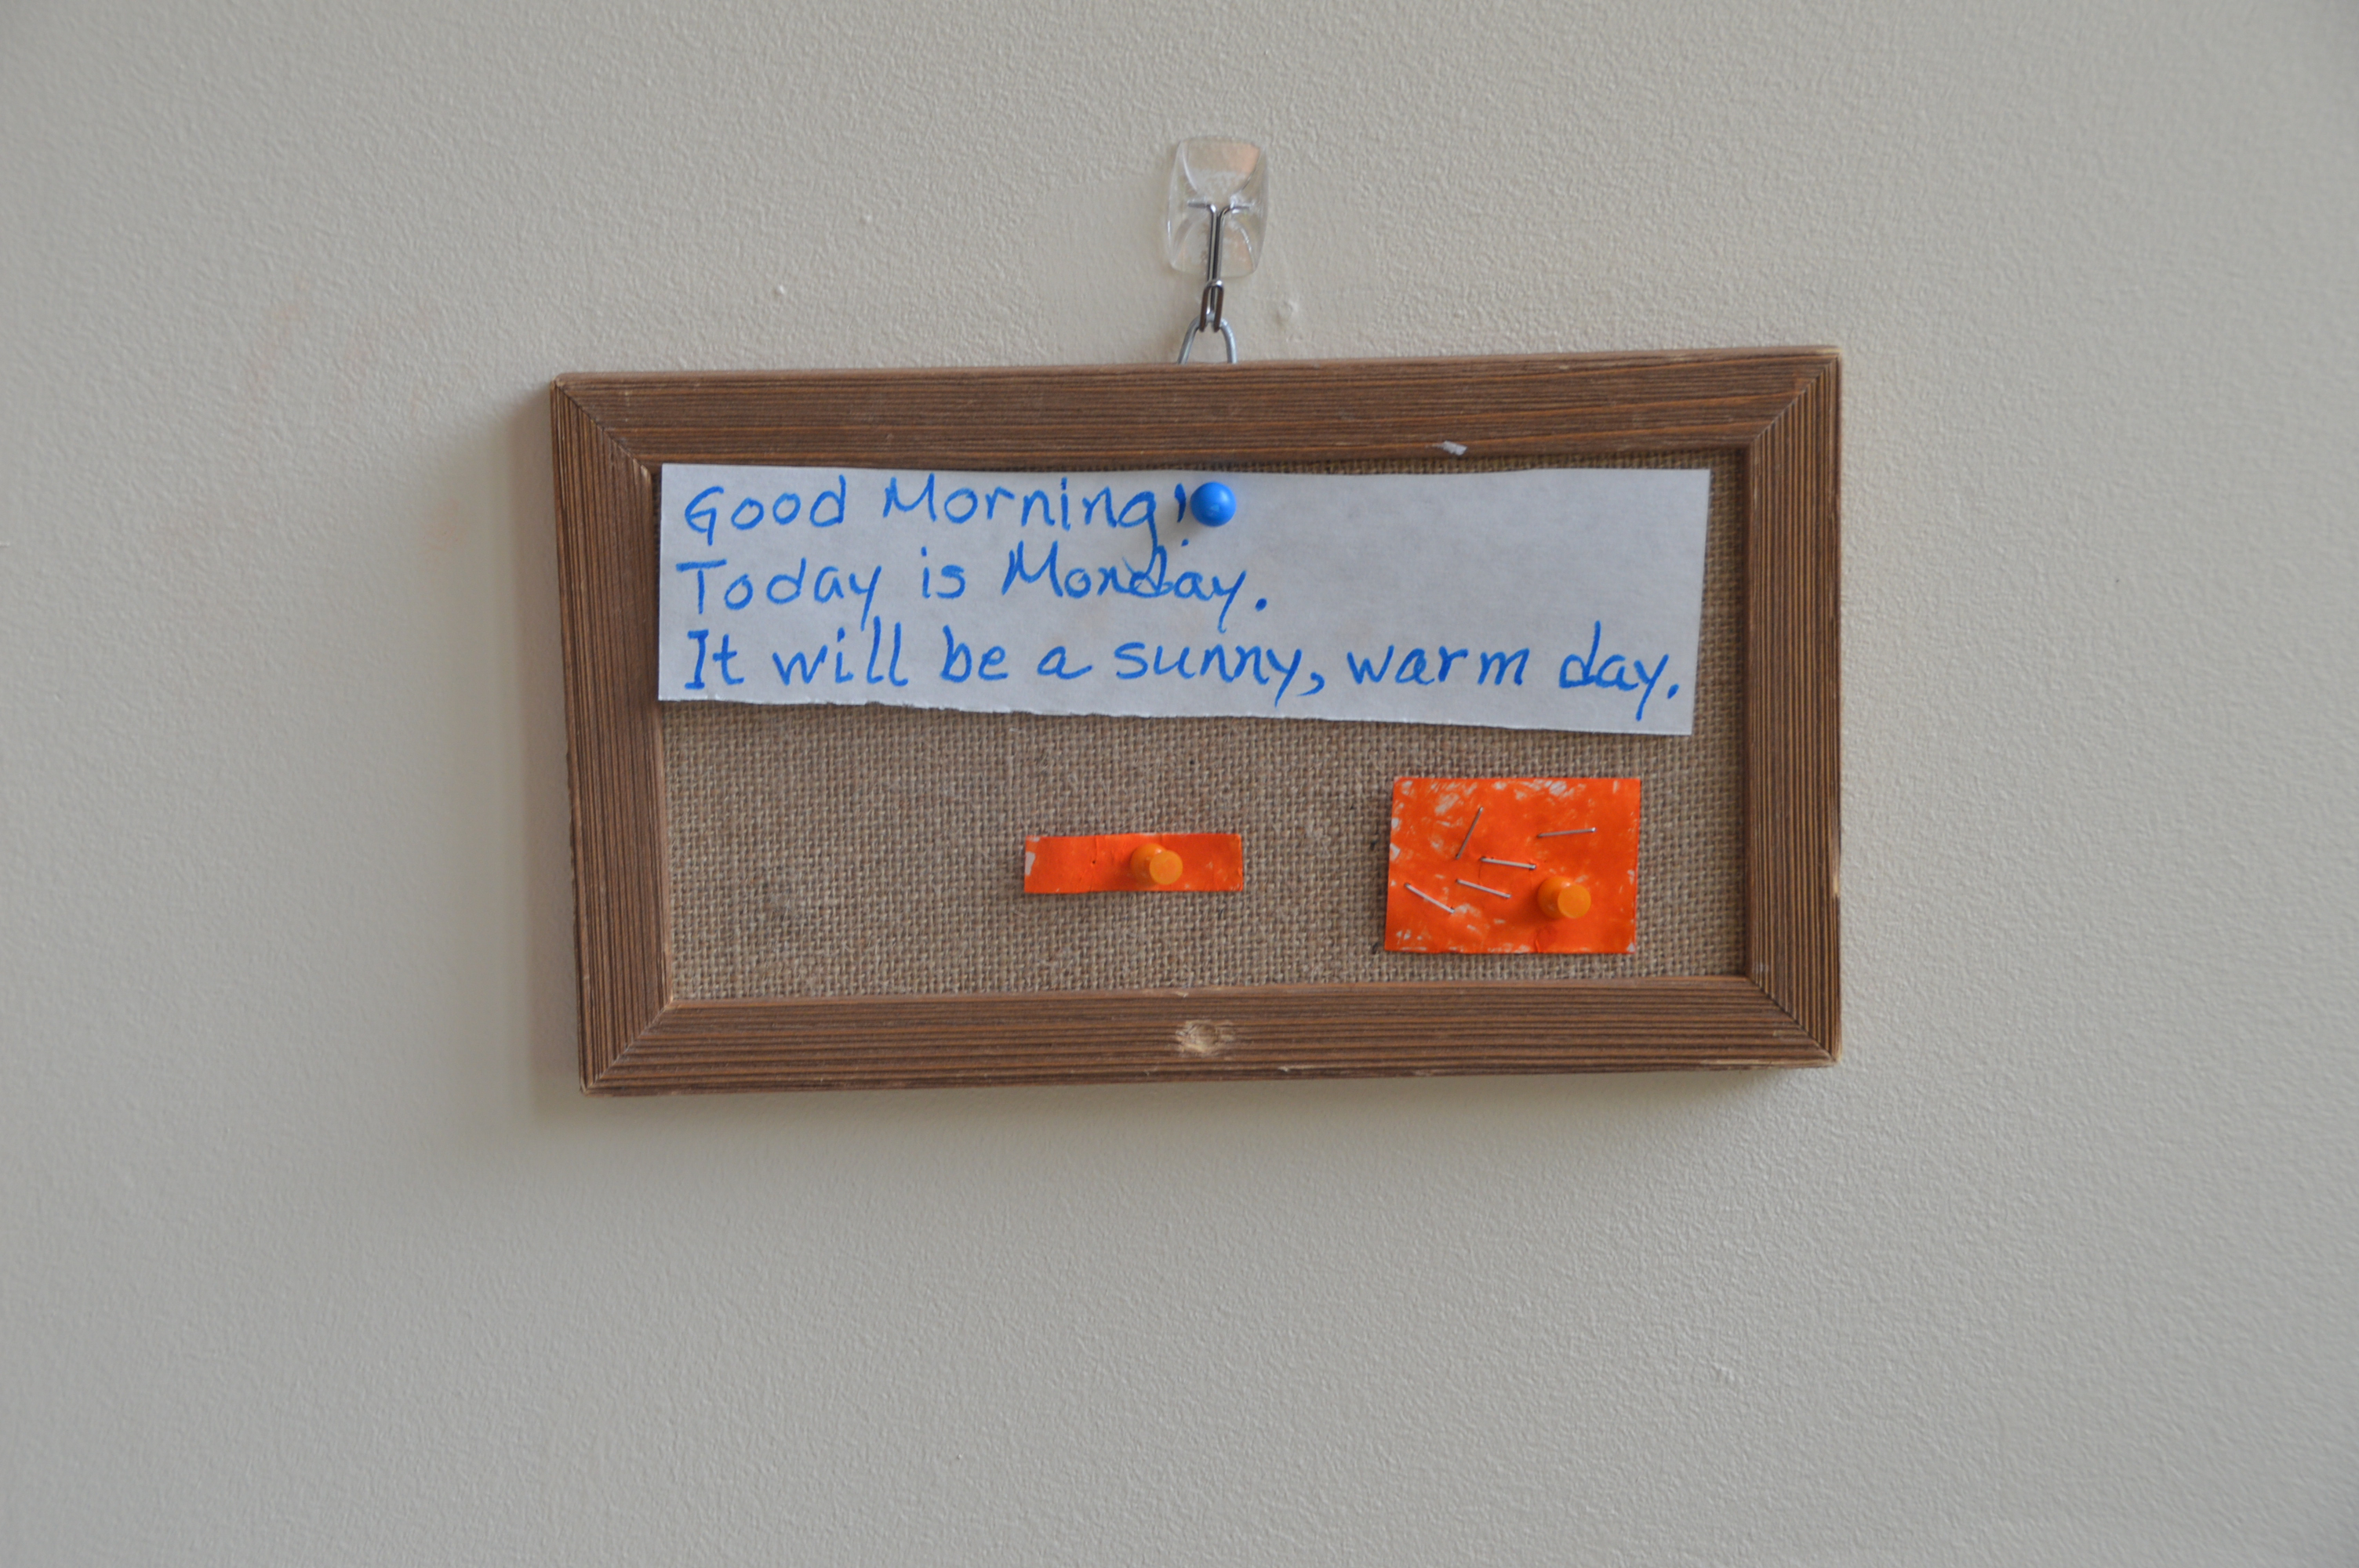 Good Morning!
Today is Monday.
It will be a sunny, warm day.